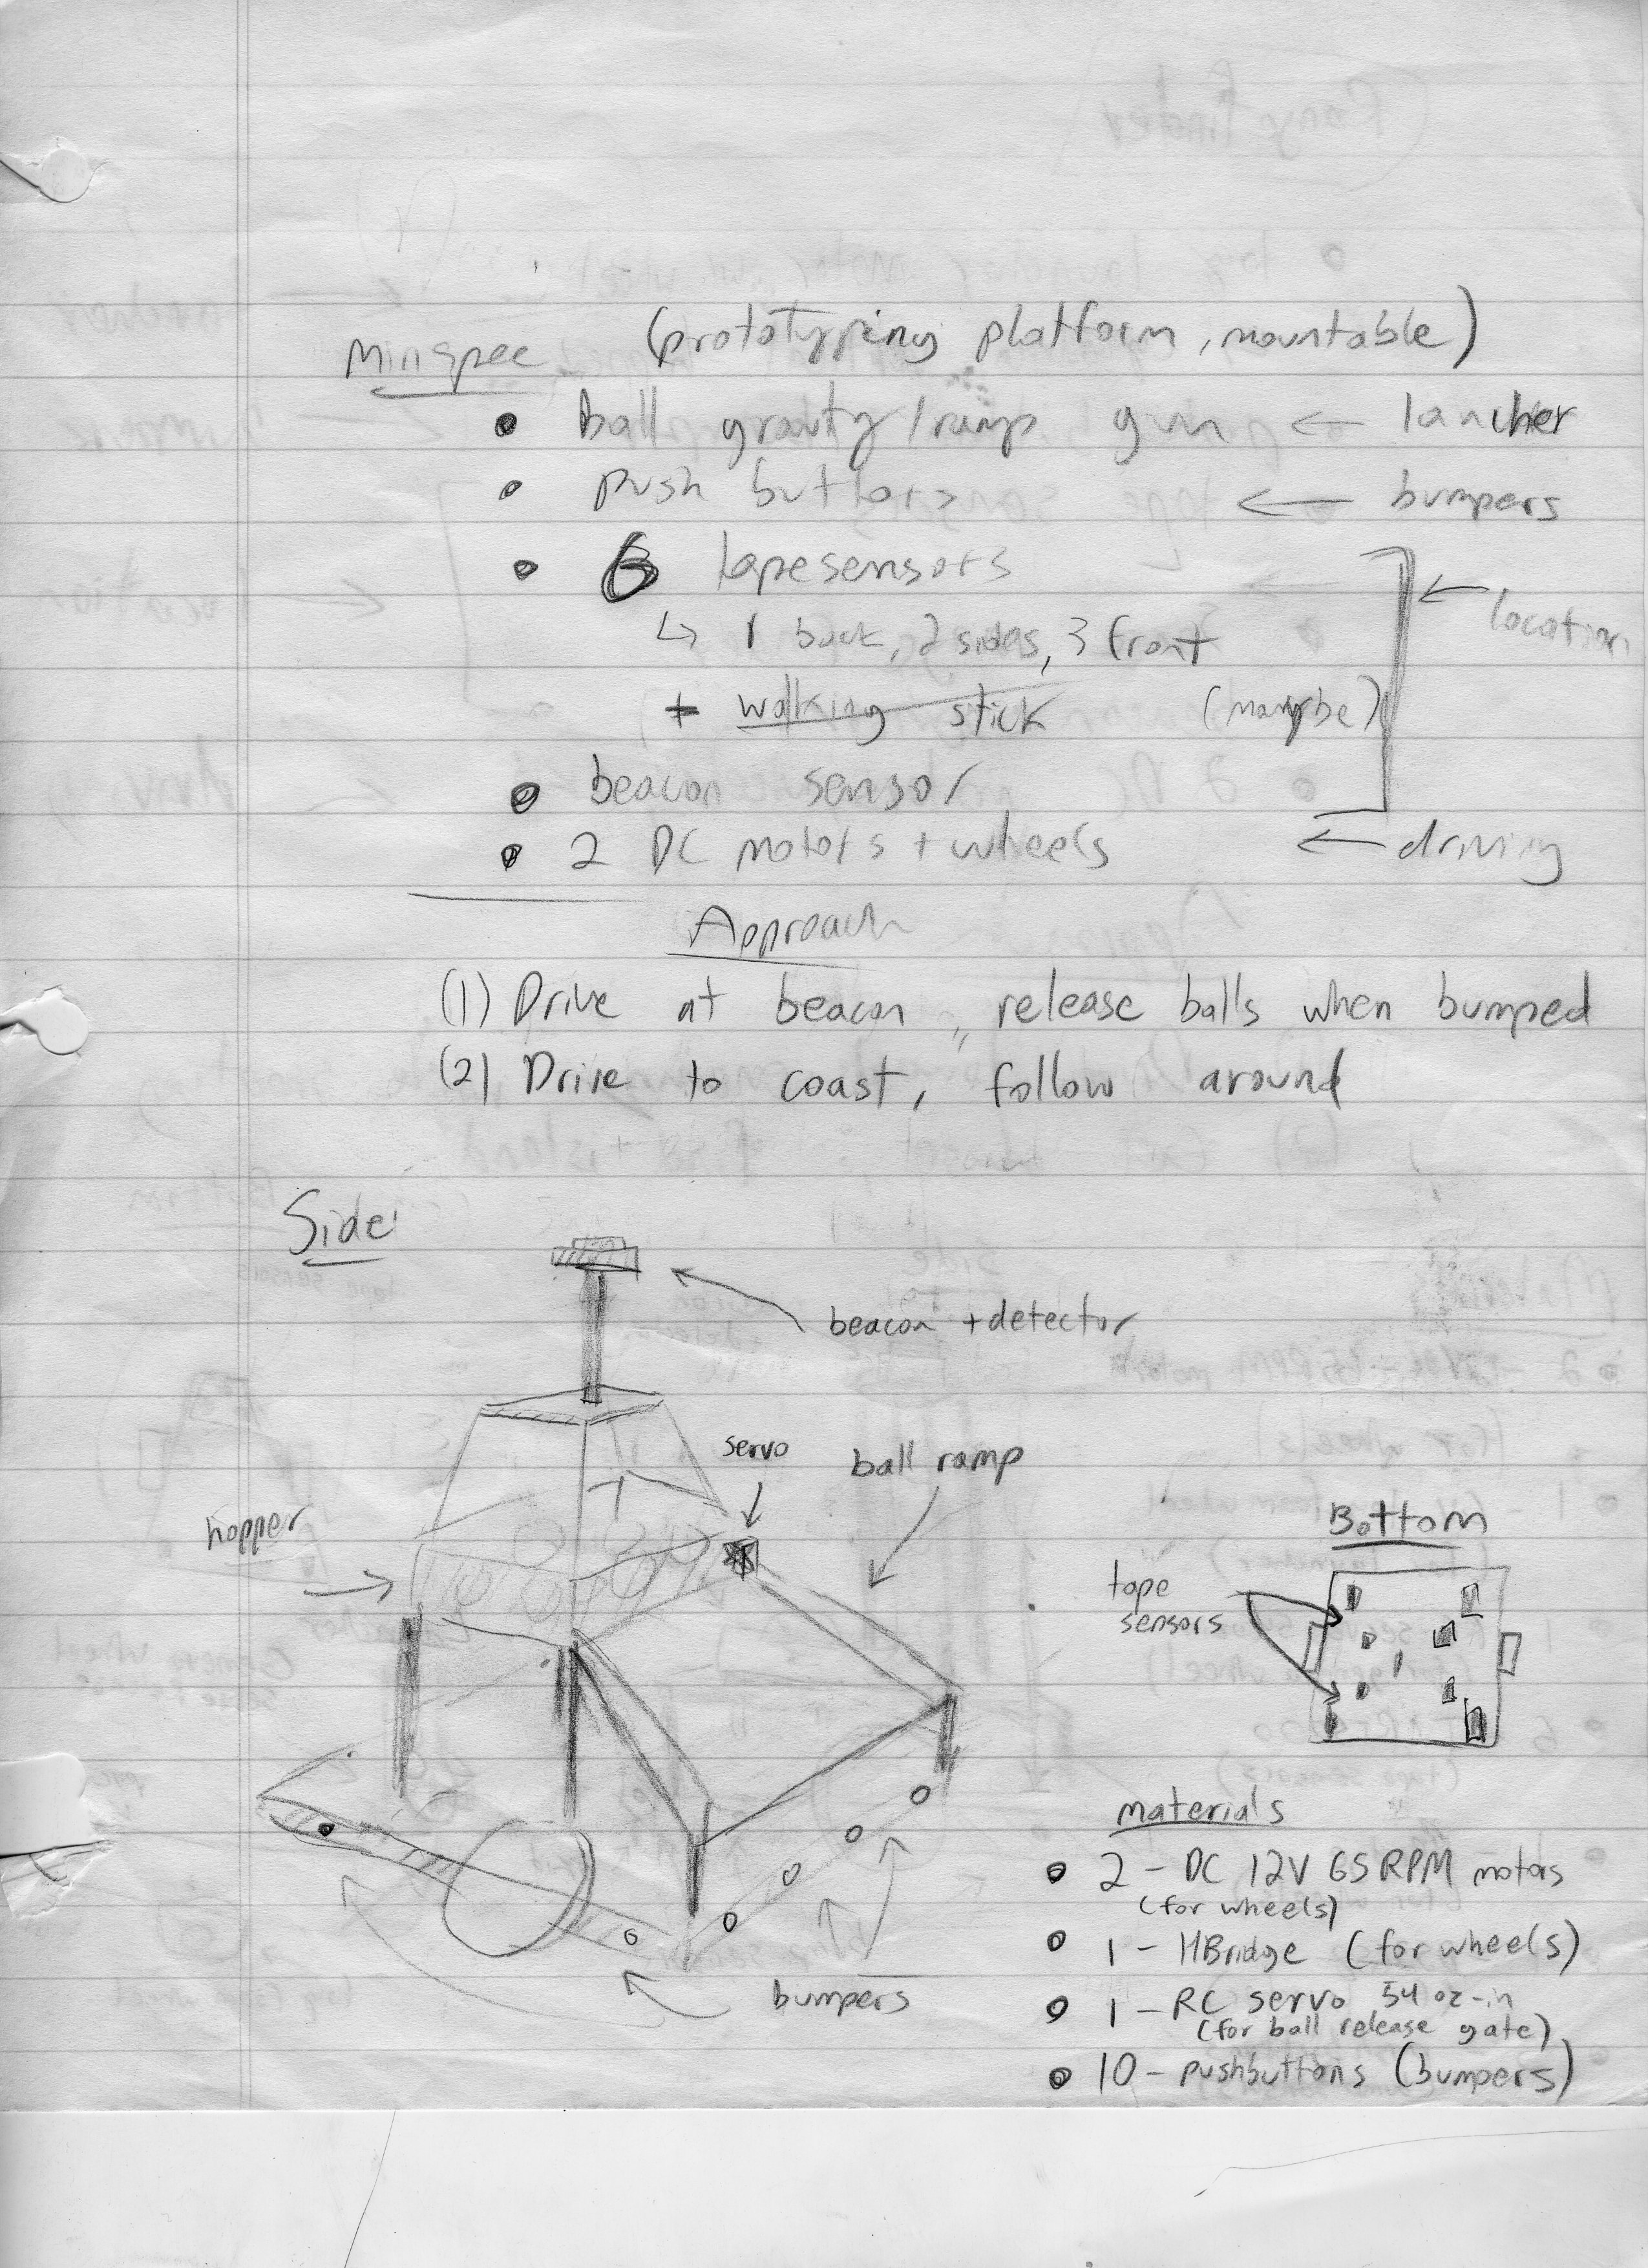 (prototyping platform, mountable)
Minspec
• ball gravity/ramp gun ← laucher
• push buttons ← bumpers
• 6 tapesensors
↳ 1 back, 2 sides, 3 front ← location
+ walking stick (maybe)
• beacon sensor
• 2 DC motors + wheels ← driving
Approach
(1) Drive at beacon, release balls when bumped
(2) Drive to coast, follow around
Side
beacon + detector
servo
ball ramp
hopper
Bottom
tape
sensors
bumpers
materials
• 2 - DC 12V 65RPM motors
(for wheels)
• 1 - HBridge (for wheels)
• 1 - RC servo 54 oz-in
(for ball release gate)
• 10 - pushbuttons (bumpers)